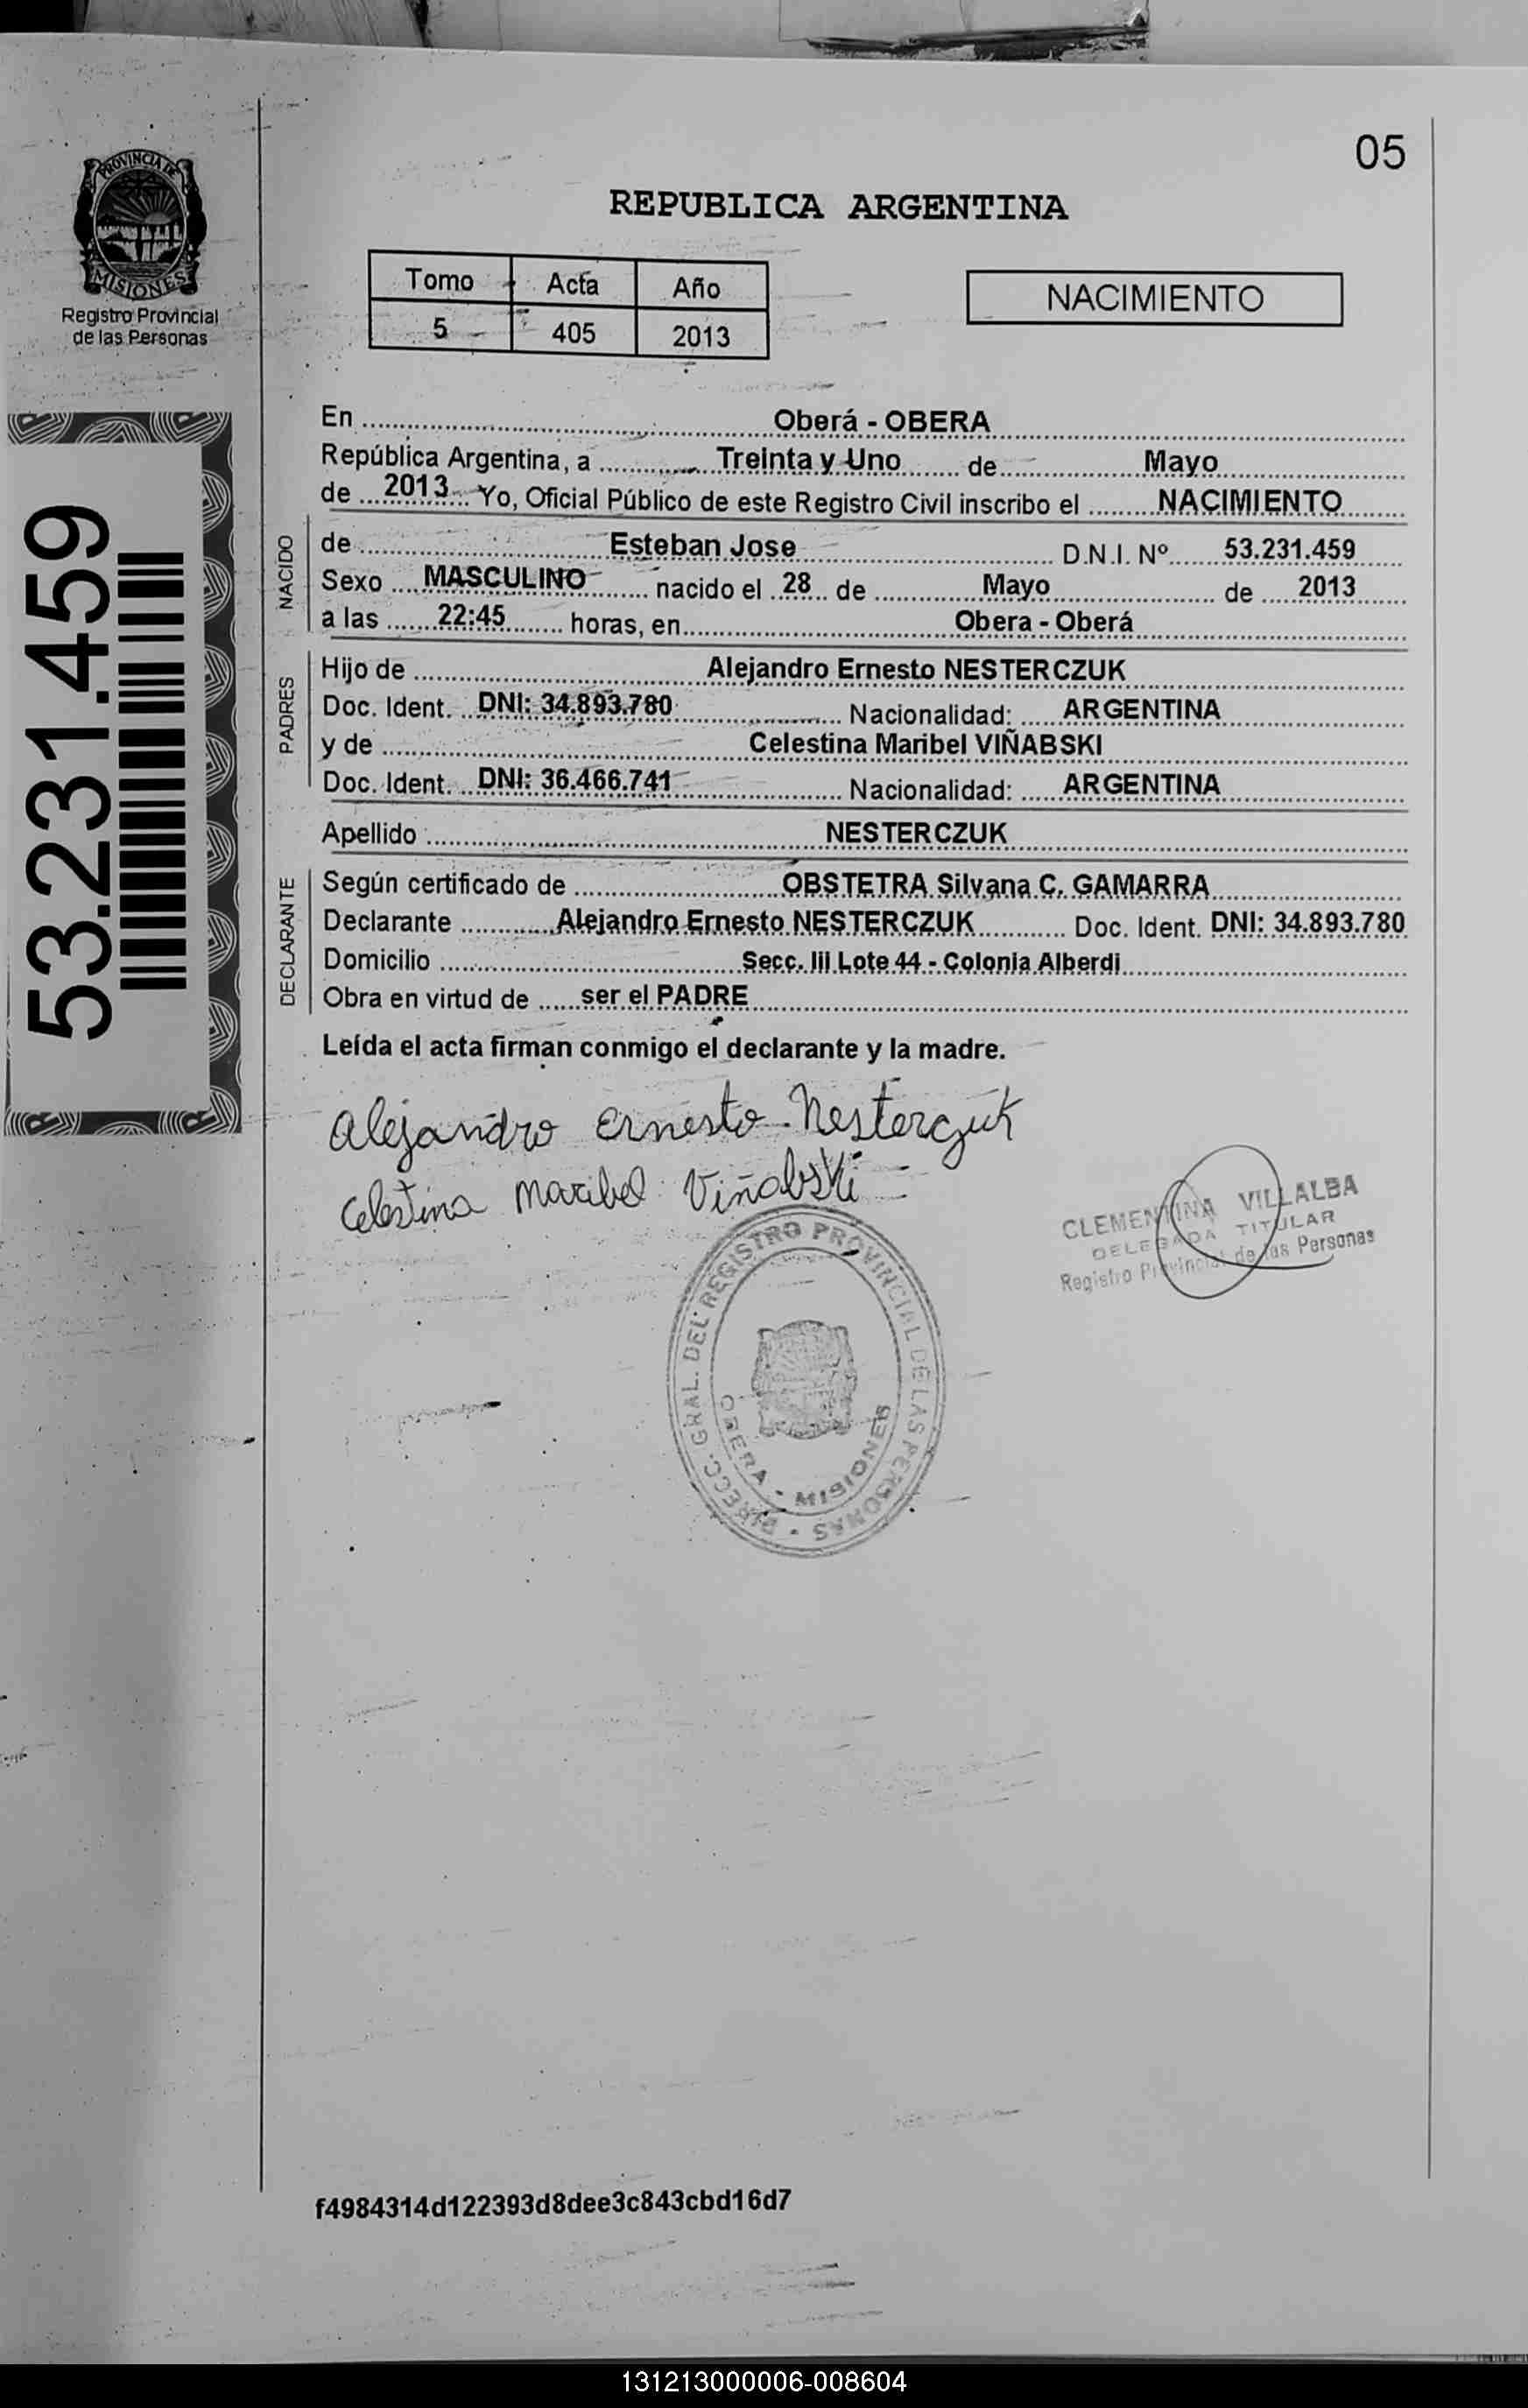 05
PROVINCIA DE
MISIONES
Registro Provincial
de las Personas
REPUBLICA ARGENTINA
Tomo Acta Año
5 405 2013
NACIMIENTO
53.231.459
En Oberá - OBERA
República Argentina, a Treinta y Uno de Mayo
de 2013 Yo, Oficial Público de este Registro Civil inscribo el NACIMIENTO
NACIDO
de Esteban Jose D.N.I. Nº 53.231.459
Sexo MASCULINO nacido el 28 de Mayo de 2013
a las 22:45 horas, en Obera - Oberá
PADRES
Hijo de Alejandro Ernesto NESTERCZUK
Doc. Ident. DNI: 34.893.780 Nacionalidad: ARGENTINA
y de Celestina Maribel VIÑABSKI
Doc. Ident. DNI: 36.466.741 Nacionalidad: ARGENTINA
Apellido NESTERCZUK
DECLARANTE
Según certificado de OBSTETRA Silvana C. GAMARRA
Declarante Alejandro Ernesto NESTERCZUK Doc. Ident. DNI: 34.893.780
Domicilio Secc. Iii Lote 44 - Colonia Alberdi
Obra en virtud de ser el PADRE
Leída el acta firman conmigo el declarante y la madre.
Alejandro Ernesto Nesterczuk
Celestina Maribel Viñabski
CLEMENTINA VILLALBA
DELEGADA TITULAR
Registro Provincial de las Personas
DIRECC. GRAL. DEL REGISTRO PROVINCIAL DE LAS PERSONAS
OBERA - MISIONES
f4984314d122393d8dee3c843cbd16d7
131213000006-008604